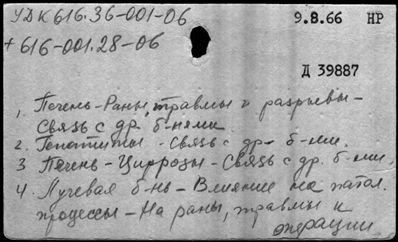 УДК 616.36-001-06
9.8.66 НР
+ 616-001.28-06
Д 39887
1. Печень-Раны, травмы и разрывы-
Связь с др. б-нями
2. Гепатиты - Связь с др. б-ми.
3 Печень - Циррозы - Связь с др. б-ми.
4. Лучевая б-нь - Влияние на патол.
процессы - На раны, травмы и
операции